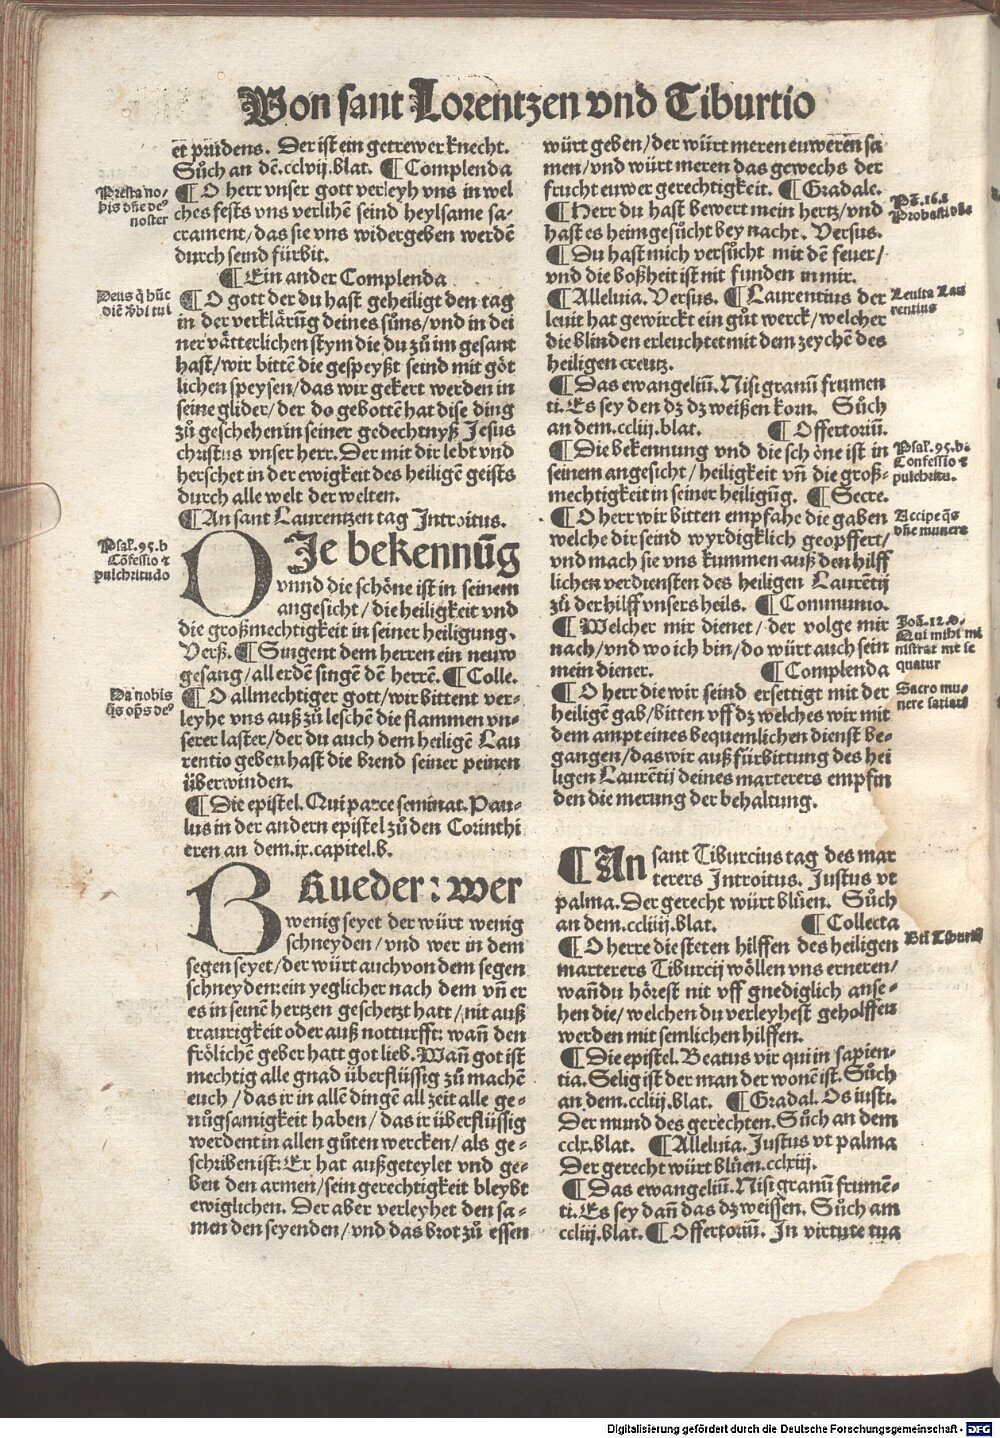 Von sant Lorentzen vnd Tiburtio
et prudens. Der ist ein getrewer knecht.
Sůch an dē.cclvij.blat. ¶ Complenda
¶ O herr vnser gott verleyh vns in wel
ches fests vns verlihē seind heylsame sa-
crament/das sie vns widergeben werdē
durch seind fürbit.
¶ Ein ander Complenda
¶ O gott der du hast geheiligt den tag
in der verklärūg deines sůns/vnd in dei
ner vätterlichen stym die du zů im gesant
hast/wir bittē die gespeyßt seind mit göt
lichen speysen/das wir gekert werden in
seine glider/der do gebottē hat dise ding
zů geschehen in seiner gedechtnyß Jesus
christus vnser herr. Der mit dir lebt vnd
herschet in der ewigkeit des heiligē geists
durch alle welt der welten.
¶ An sant Laurentzen tag Introitus.
OJe bekennūg
vnnd die schöne ist in seinem
angesicht/die heiligkeit vnd
die großmechtigkeit in seiner heiligung.
Verß. ¶ Singent dem herren ein neuw
gesang/all erdē singē dē herrē. ¶ Colle.
¶ O allmechtiger gott/wir bittent ver-
leyhe vns auß zů leschē die flammen vn-
serer laster/der du auch dem heiligē Lau
rentio geben hast die brend seiner peinen
überwinden.
¶ Die epistel. Qui parce seminat. Pau-
lus in der andern epistel zů den Corinthi
eren an dem.ix.capitel.b.
BRueder: wer
wenig seyet der würt wenig
schneyden/vnd wer in dem
segen seyet/der würt auch von dem segen
schneyden:ein yeglicher nach dem vñ er
es in seinē hertzen geschetzt hatt/nit auß
traurigkeit oder auß notturfft: wañ den
frölichē geber hatt got lieb. Wañ got ist
mechtig alle gnad überflüssig zů machē
euch/das ir in allē dingē all zeit alle ge-
nůgsamigkeit haben/das ir überflüssig
werdent in allen gůten wercken/als ge-
schriben ist: Er hat außgeteylet vnd ge-
ben den armen/sein gerechtigkeit bleybt
ewiglichen. Der aber verleyhet den sa-
men den seyenden/vnd das brot zů essen
Presta no-
bis dñe de9
noster
Deus q̄ hūc
diē
Psal.95.b
Cōfessio ⁊
pulchritudo
Da nobis
q̄s op̄s de9
würt geben/der würt meren euweren sa
men/vnd würt meren das gewechs der
frucht euwer gerechtigkeit. ¶ Gradale.
¶ Herr du hast bewert mein hertz/vnd
hast es heimgesůcht bey nacht. Versus.
¶ Du hast mich versůcht mit dē feuer/
vnd die boßheit ist nit funden in mir.
¶ Alleluia. Versus. ¶ Laurentius der
leuit hat gewirckt ein gůt werck/welcher
die blinden erleuchtet mit dem zeychē des
heiligen creutz.
¶ Das ewangeliū. Nisi granū frumen
ti. Es sey den dz dz weißen korn. Sůch
an dem.ccliij.blat. ¶ Offertoriū.
¶ Die bekennung vnd die schöne ist in
seinem angesicht/heiligkeit vñ die groß-
mechtigkeit in seiner heiligūg. ¶ Secre.
¶ O herr wir bitten empfahe die gaben
welche dir seind wyrdigklich geopffert/
vnd mach sie vns kummen auß den hilff
lichen verdiensten des heiligen Laurētij
zů der hilff vnsers heils. ¶ Communio.
¶ Welcher mir dienet/der volge mir
nach/vnd wo ich bin/do würt auch sein
mein diener. ¶ Complenda
¶ O herr die wir seind ersettigt mit der
heiligē gab/bitten vff dz welches wir mit
dem ampt eines bequemlichen dienst be-
gangen/das wir auß fürbittung des hei
ligen Laurētij deines marterers empfin
den die merung der behaltung.
¶ An sant Tiburcius tag des mar
terers Introitus. Justus vt
palma. Der gerecht würt blůen. Sůch
an dem.ccliiij.blat. ¶ Collecta
¶ O herre die steten hilffen des heiligen
marterers Tiburcij wöllen vns erneren/
wañ du hörest nit vff gnediglich anse-
hen die/welchen du verleyhest geholffen
werden mit semlichen hilffen.
¶ Die epistel. Beatus vir qui in sapien-
tia. Selig ist der man der wonē ist. Sůch
an dem.ccliij.blat. ¶ Gradal. Os iusti.
Der mund des gerechten. Sůch an dem
cclx.blat. ¶ Alleluia. Justus vt palma
Der gerecht würt blůen.cclxiij.
¶ Das ewangeliū. Nisi granū frumē-
ti. Es sey dañ das dz weissen. Sůch am
ccliij.blat. ¶ Offertoriū. In virtute tua
Probasti dñe
Leuita Lau
rentius
Psal.95.b.
Confessio ⁊
pulchritu.
Accipe q̄s
dñe munera
Joā.12.d.
Qui mihi mi
nistrat me se
quatur
Sacro mu-
nere satiati
Bti Tiburtij
Digitalisierung gefördert durch die Deutsche Forschungsgemeinschaft - DFG